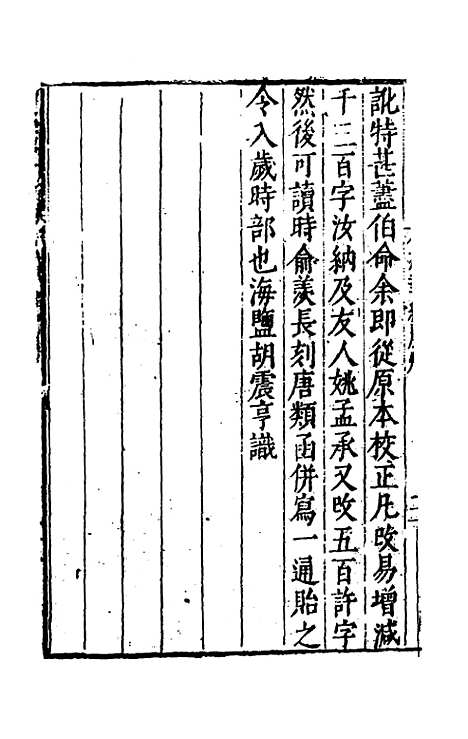 訛特甚蓋伯命余即從原本校正凡改易增减
千二百字汝納及友人姚孟承又改五百許字
然後可讀時俞羨長刻唐類函併寫一通貽之
令入歲時部也海鹽胡震亨識